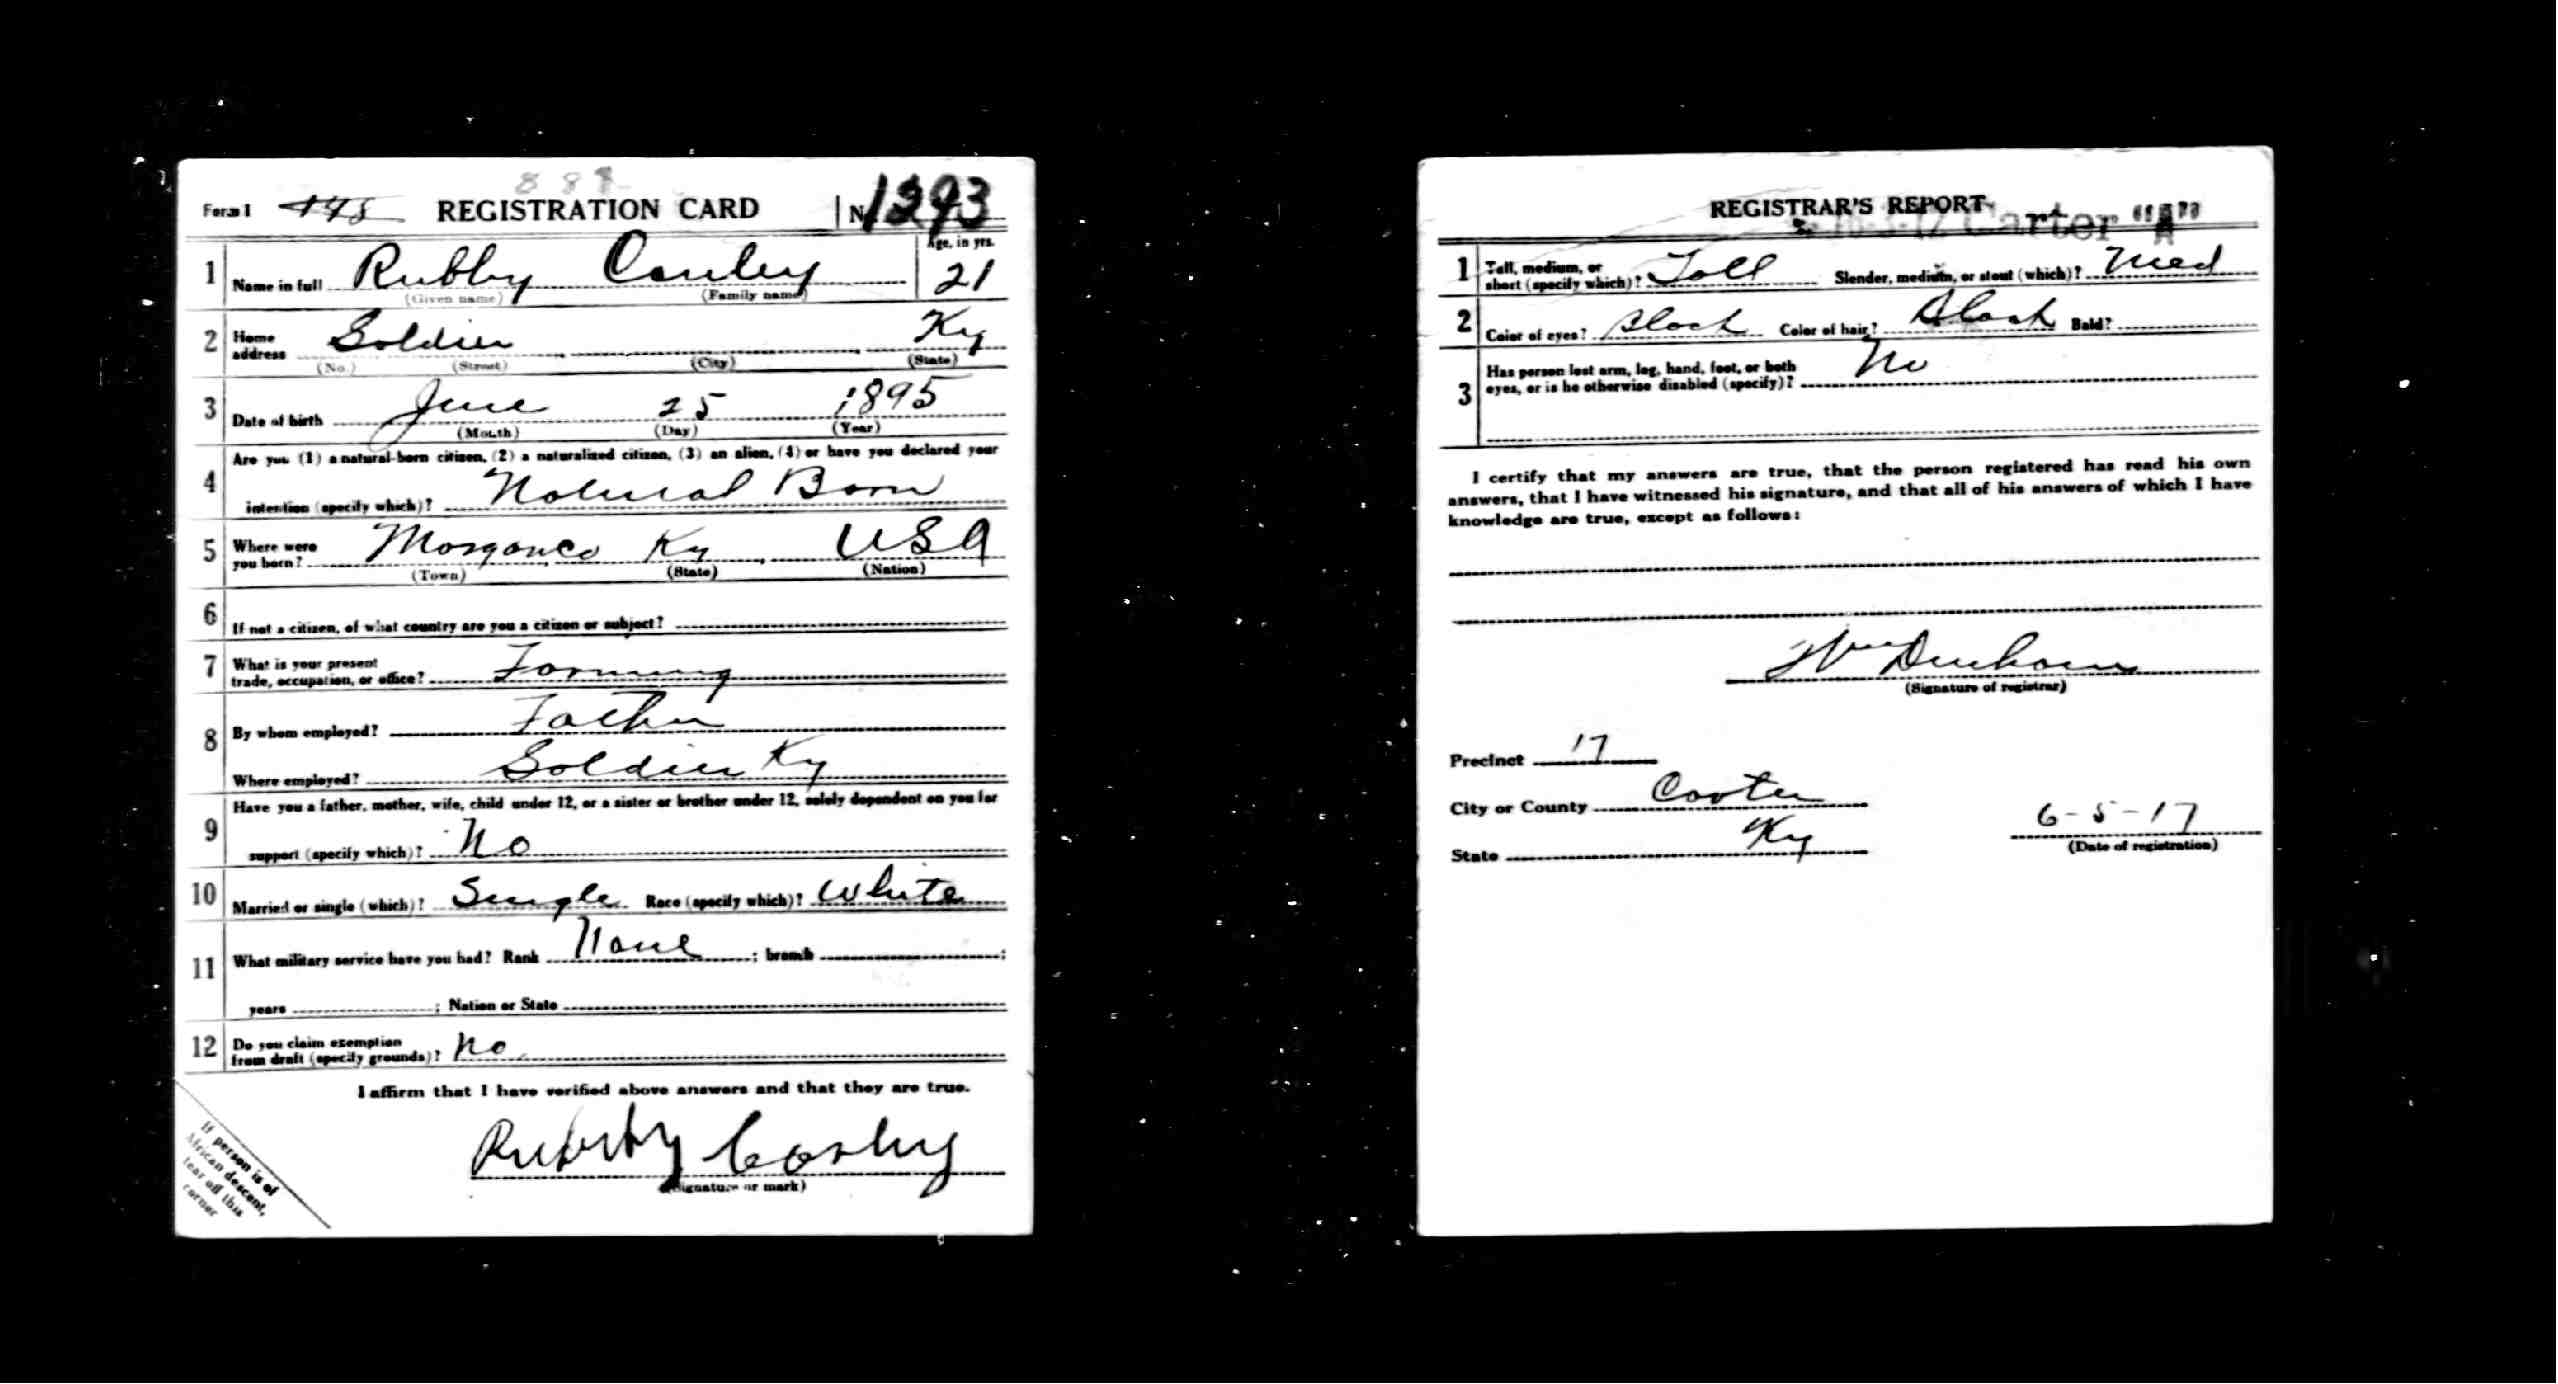 888
Form 1 445 REGISTRATION CARD No. 1293
1 Name in full Rubby Conley Age, in yrs. 21
(Given name) (Family name)
2 Home address Soldier Ky
(No.) (Street) (City) (State)
3 Date of birth June 25 1895
(Month) (Day) (Year)
Are you (1) a natural-born citizen, (2) a naturalized citizen, (3) an alien, (4) or have you declared your
4 intention (specify which)? Natural Born
5 Where were you born? Morganco Ky USA
(Town) (State) (Nation)
6 If not a citizen, of what country are you a citizen or subject?
7 What is your present trade, occupation, or office? Farming
8 By whom employed? Father
Where employed? Soldier Ky
Have you a father, mother, wife, child under 12, or a sister or brother under 12, solely dependent on you for
9 support (specify which)? No
10 Married or single (which)? Single Race (specify which)? White
11 What military service have you had? Rank None ; branch ;
years ; Nation or State
12 Do you claim exemption from draft (specify grounds)? No
I affirm that I have verified above answers and that they are true.
Rubby Conley
(Signature or mark)
If person is of
African descent,
tear off this
corner
REGISTRAR'S REPORT
Carter "A"
1 Tall, medium, or short (specify which)? Tall Slender, medium, or stout (which)? Med
2 Color of eyes? Black Color of hair? Black Bald?
3 Has person lost arm, leg, hand, foot, or both eyes, or is he otherwise disabled (specify)? No
I certify that my answers are true, that the person registered has read his own
answers, that I have witnessed his signature, and that all of his answers of which I have
knowledge are true, except as follows:
Wm Dunham
(Signature of registrar)
Precinct 17
City or County Carter
State Ky
6-5-17
(Date of registration)